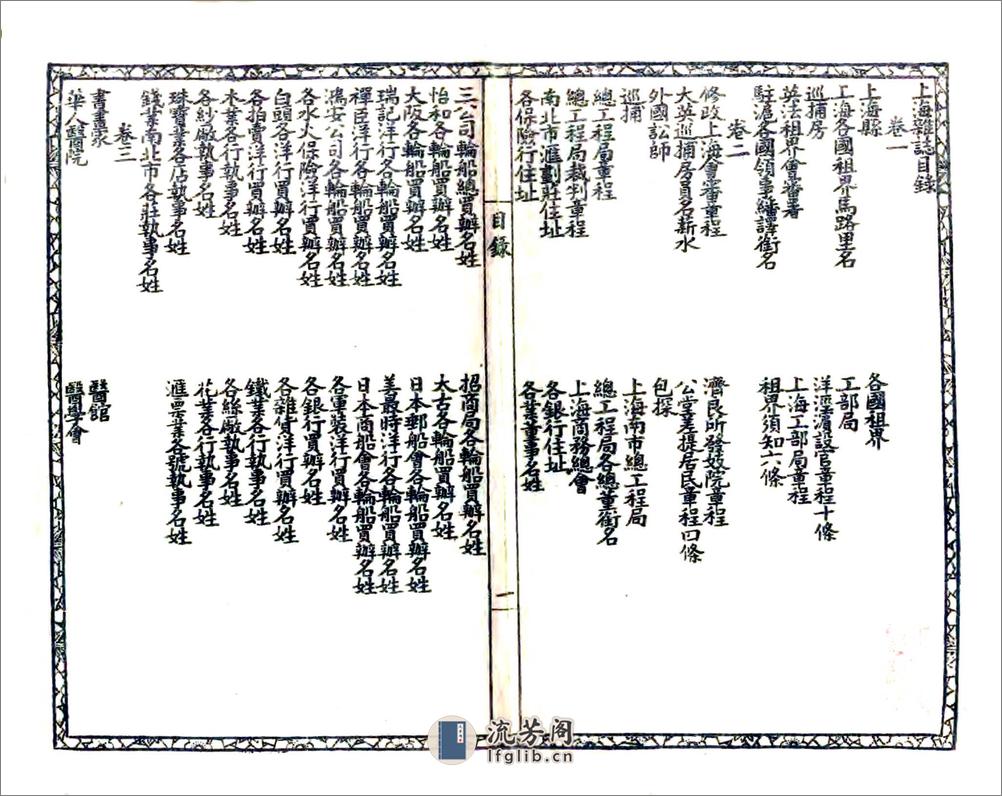 上海雜誌目錄
卷一
上海縣　各國租界
上海各國租界馬路里名　工部局
巡捕房　洋涇濱設官章程十條
英法租界會審署　上海工部局章程
駐滬各國領事繙譯銜名　租界須知六條
卷二
修改上海會審章程　濟良所發妓院章程
大英巡捕房員名薪水　公堂差提居民章程四條
外國訟師　包探
巡捕　上海南市總工程局
總工程局章程　總工程局各總董銜名
總工程局裁判章程　上海商務總會
南北市滙劃莊住址　各銀行住址
各保險行住址　各業董事名姓
目錄　一
三公司輪船總買辦名姓　招商局各輪船買辦名姓
怡和各輪船買辦名姓　太古各輪船買辦名姓
大阪各輪船買辦名姓　日本郵船會各輪船買辦名姓
瑞記洋行各輪船買辦名姓　美最時洋行各輪船買辦名姓
禪臣洋行各輪船買辦名姓　日本商船會各輪船買辦名姓
鴻安公司各輪船買辦名姓　各軍裝洋行買辦名姓
各水火保險洋行買辦名姓　各銀行買辦名姓
白頭各洋行買辦名姓　各雜貨洋行買辦名姓
各拍賣洋行買辦名姓　鐵業各行執事名姓
木業各行執事名姓　各絲廠執事名姓
各紗廠執事名姓　花業各行執事名姓
珠寶業各店執事名姓　滙票業各號執事名姓
錢業南北市各莊執事名姓
卷三
書畫家　醫館
華人醫院　醫學會
流芳阁
lfglib.cn